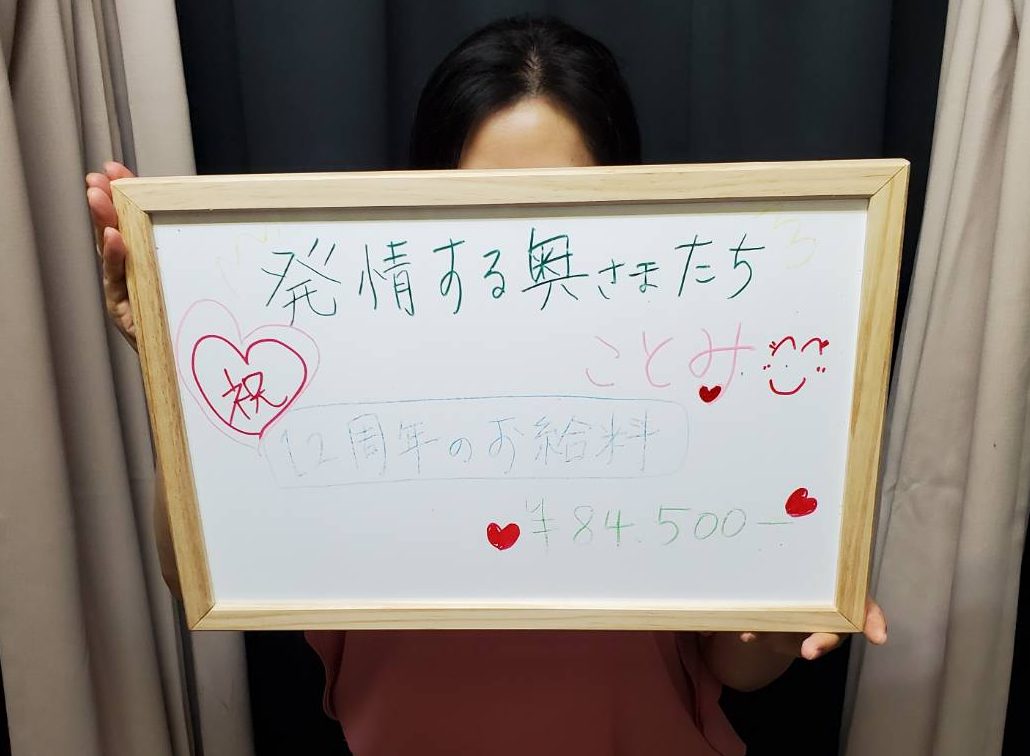 発情する奥さまたち
ことみ
祝
12周年のお給料
¥84.500-